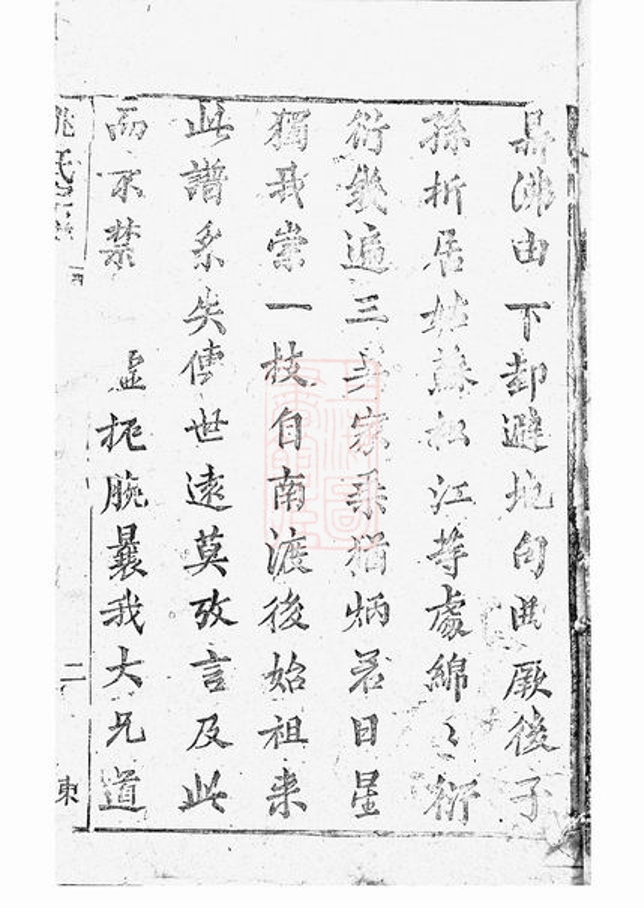 鼎沸由下却避地句曲厥後子
孫析居姑蘇松江等處綿〻衍
衍幾遍三吳家乗猶炳若日星
獨我崇一枝自南渡後始祖来
此譜系失傳世遠莫攷言及此
而不禁 虚扼腕曩我大兄道
姚氏家
二
東